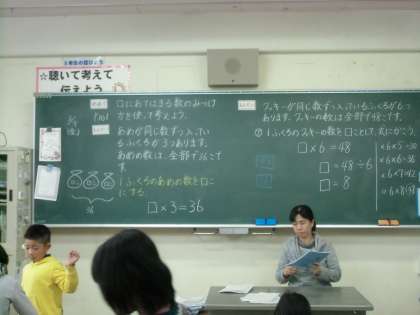 ☆聴いて考えて
伝えよう
P101
□にあてはまる数のみつけ
方を使って考えよう。
あめが同じ数ずつ入っている
ふくろが3つあります。
あめの数は、全部で36こで
す。
1ふくろのあめの数を□
にする
36
□×3=36
スキーが同じ数ずつ入っているふくろが6つ
あります。スキーの数は全部で48です。
① 1ふくろのスキーの数を□として、式にかこう。
□×6=48
□=48÷6
□=8
×6×5=30
×6×6=36
×6×7=42
×6×8=48